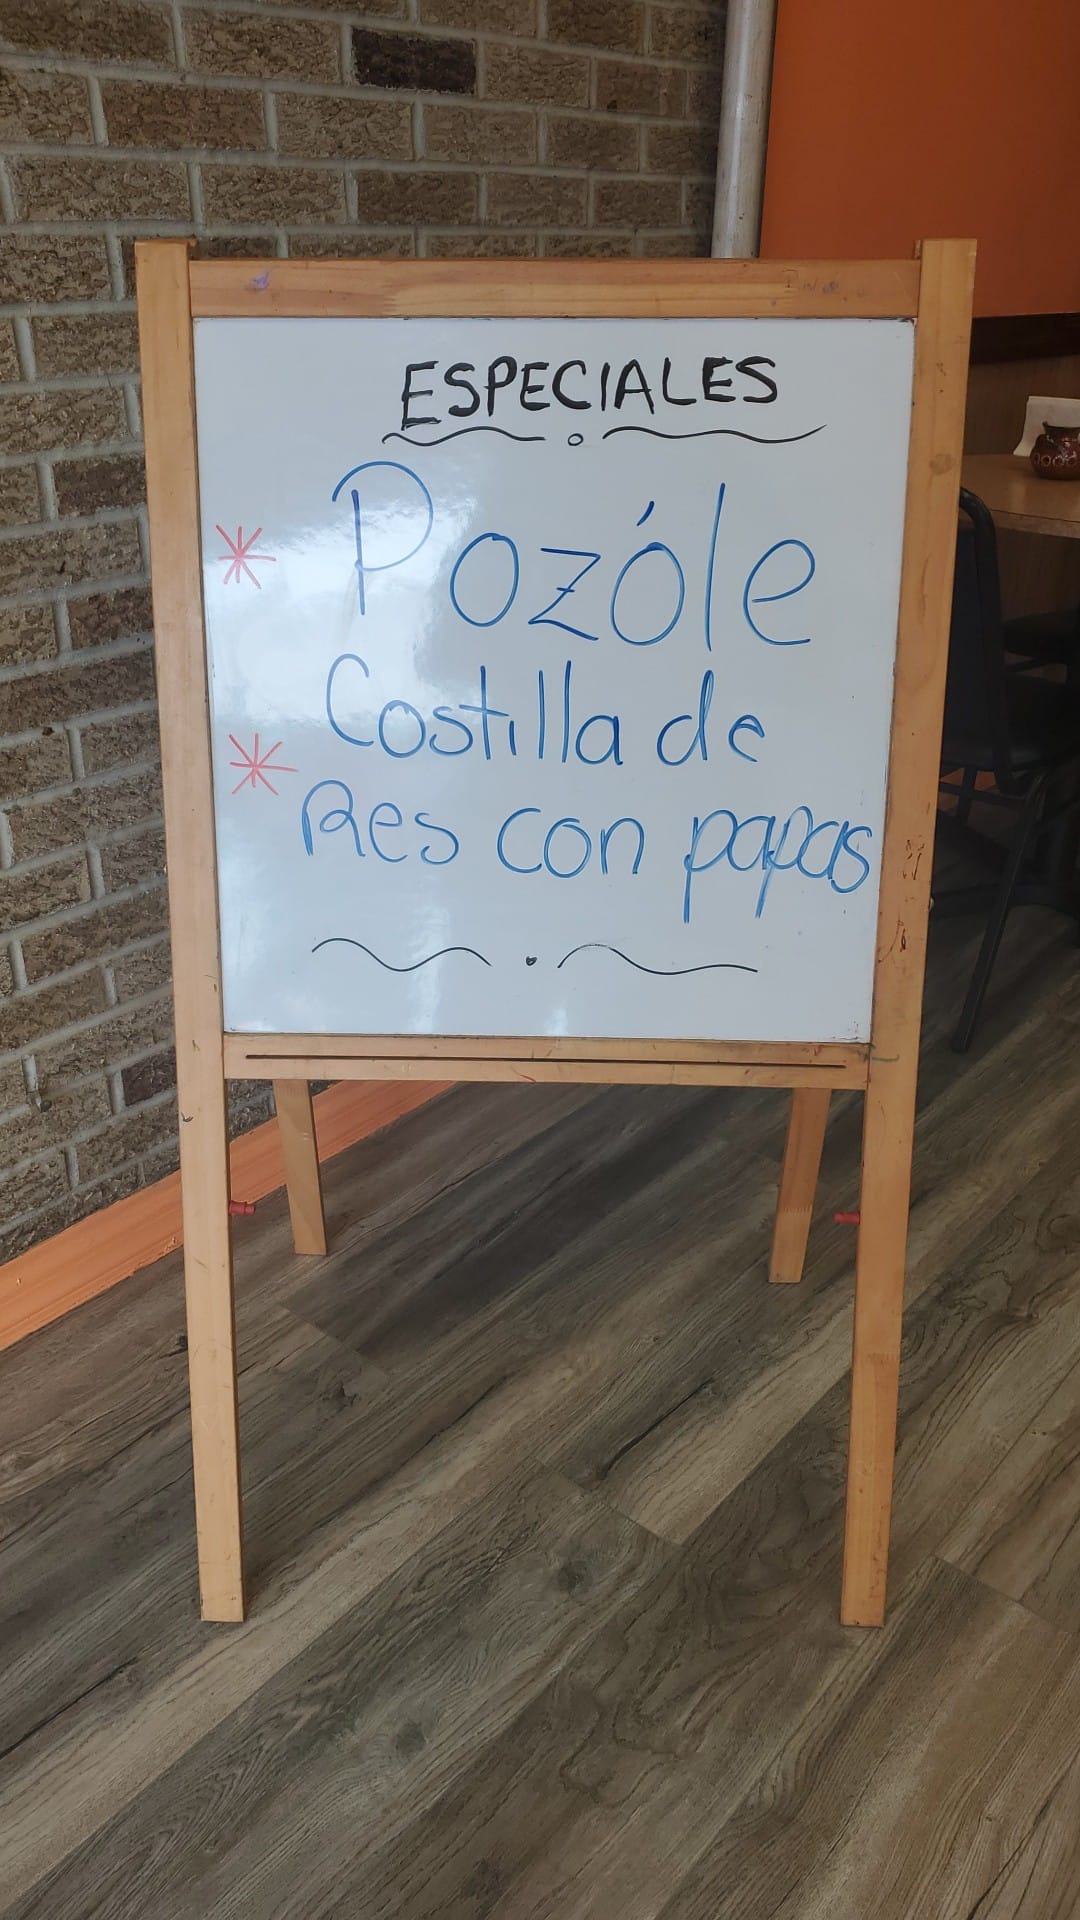 ESPECIALES
* Pozóle
* Costilla de
Res con papas